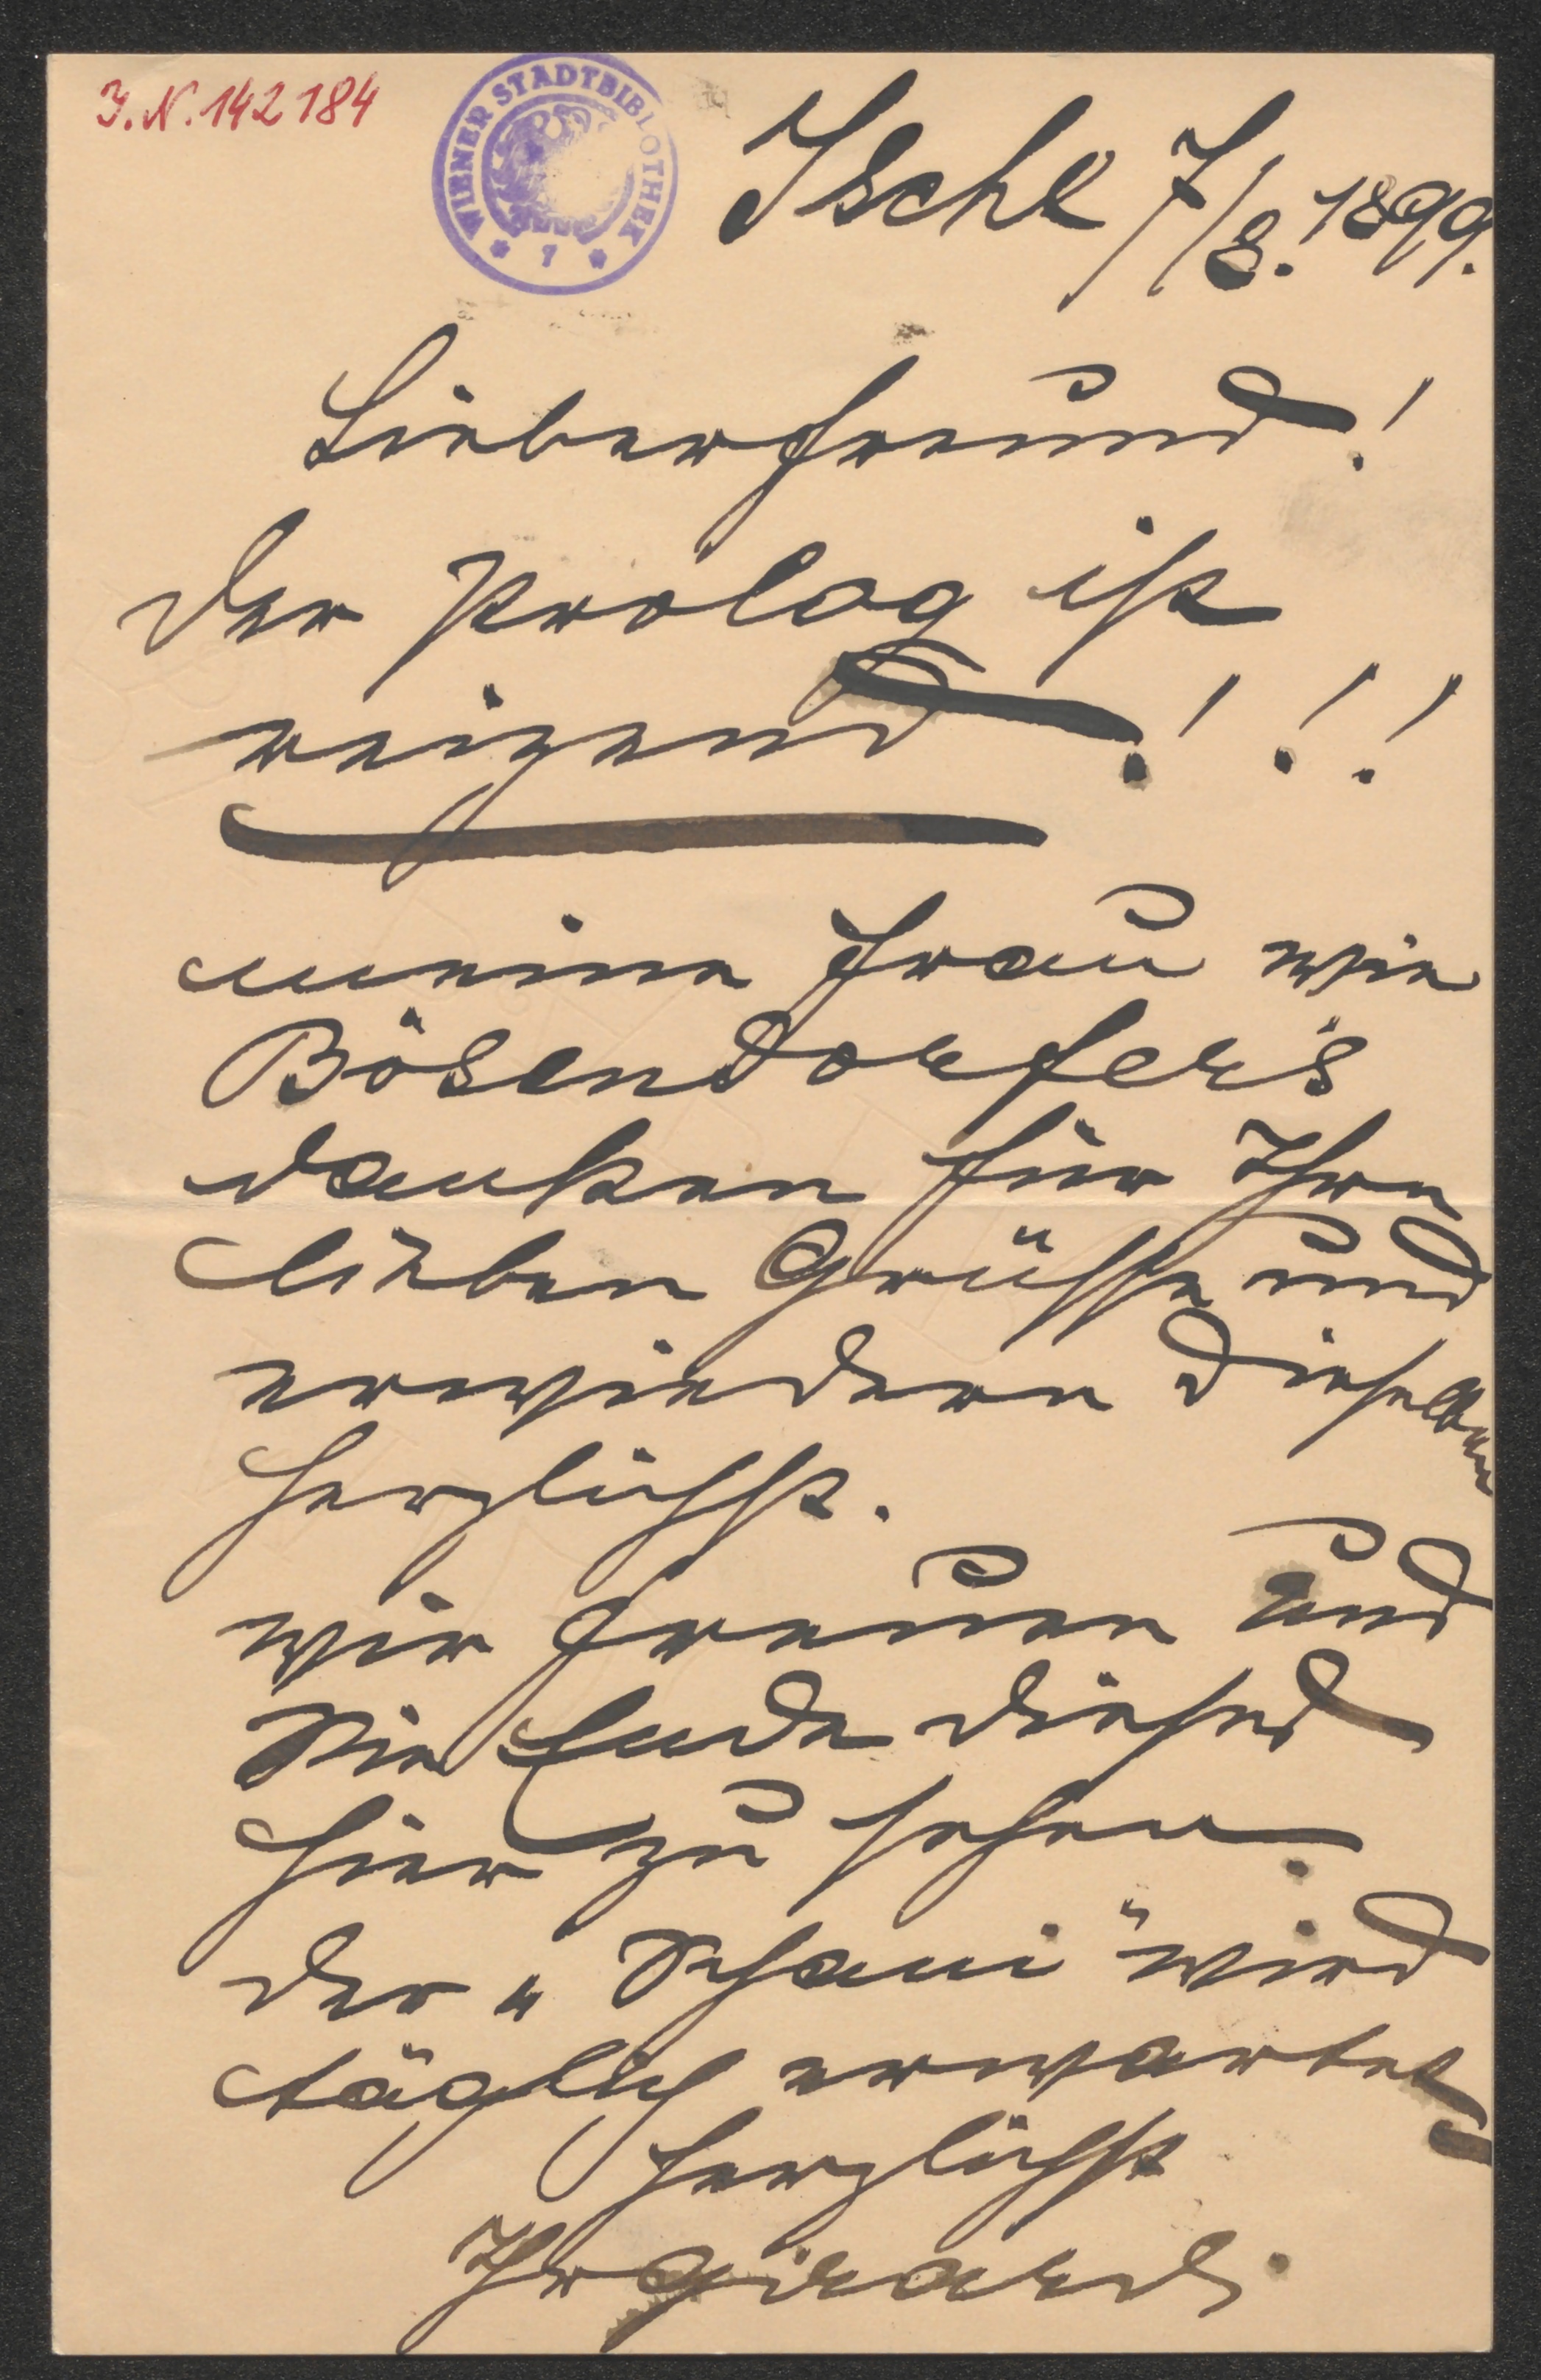 I.N. 142184
WIENER STADTBIBLIOTHEK
* 7 *
Ischl 7/8. 1899.
Lieber Freund!
der Prolog ist
reizend!!!
meine Frau wie
Bösendorfer's
danken für Ihre
lieben Grüsse und
erwiedern dieselben
herzlichst.
wir freuen uns
Sie Ende dieses
hier zu sehen.
der „Schani" wird
täglich erwartet
herzlichst
Ihr Girardi